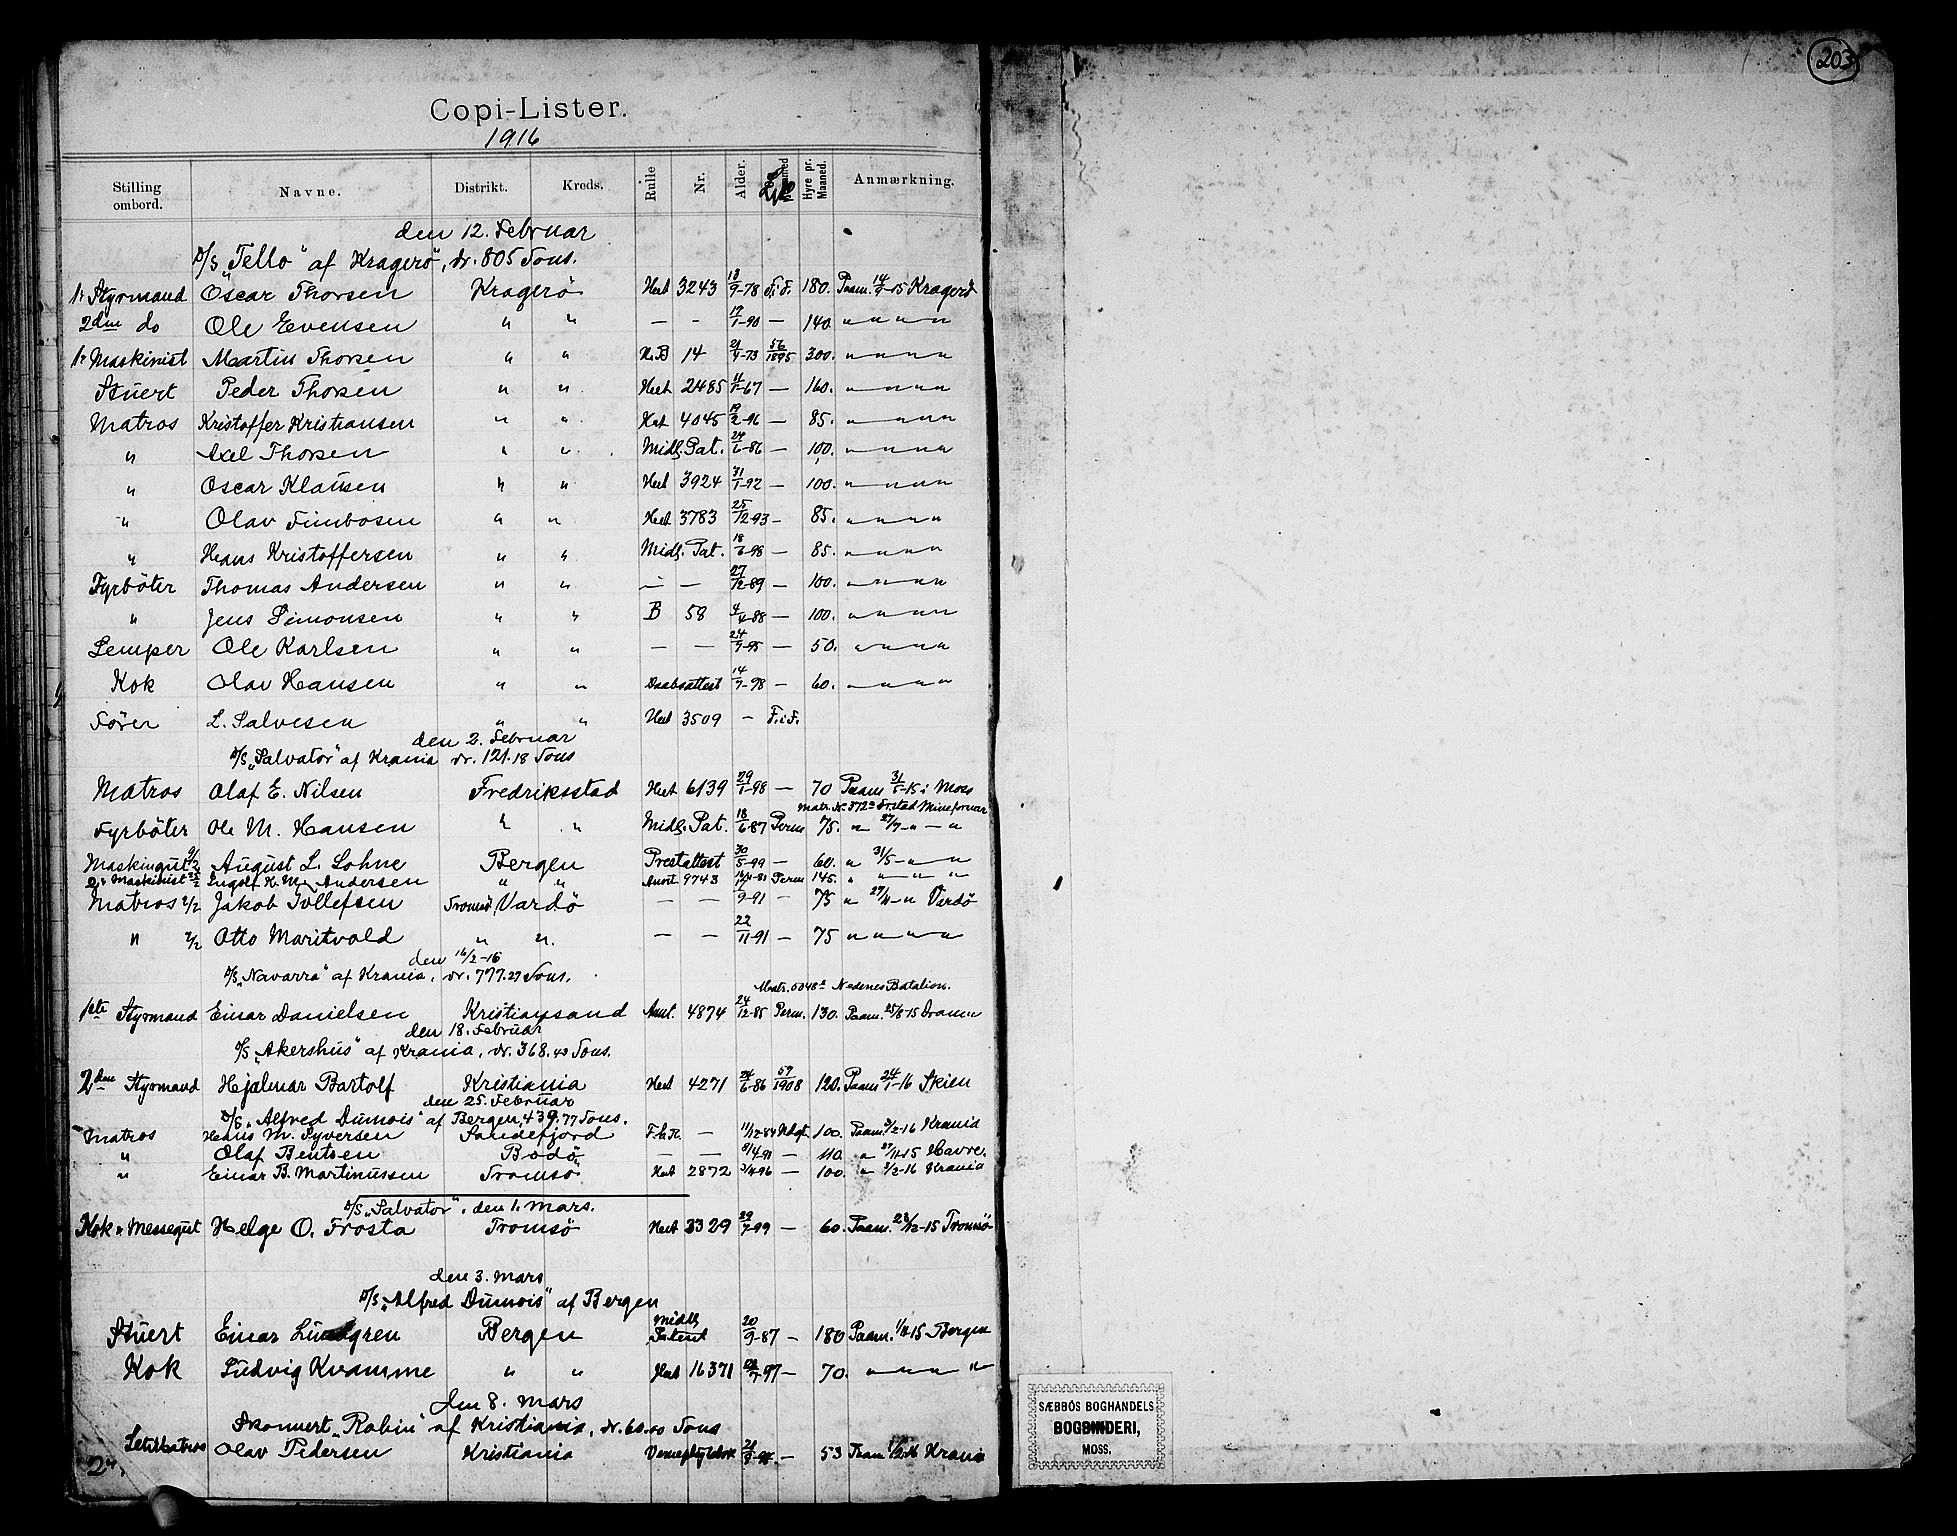 203
Copi-Lister.
1916
Stilling ombord. Navne. Distrikt. Kreds. Rulle Nr. Alder. Hyre pr. Maaned. Anmærkning.
den 12. Februar
D/S „Tello" af Kragerö, dr. 805 Tons.
1ste Styrmand Oscar Thorsen Kragerö Hert 3243 18/9-78 F.F. 180. Paam. 14/9-15 Kragerö
2den do Ole Evensen " " — - 17/1-90 — 140 " " " "
1ste Maskinist Martin Thorsen " " H.B 14 21/9-73 56/1895 300. " " " "
Stuert Peder Thorsen " " Hert 2485 11/1-67 — 160. " " " "
Matros Kristoffer Kristiansen " " Hert 4045 19/2-96 — 85. " " " "
" Axel Thorsen " " Midl. Pat. 24/6-86 — 100. " " " "
" Oscar Klausen " " Hert 3924 31/1-92 — 100. " " " "
" Olav Simbosen " " Hert 3783 25/12-93 — 85. " " " "
" Hans Kristoffersen " " Midl. Pat. 18/6-98 — 85. " " " "
Fyrböter Thomas Andersen " " — — 27/12-89 — 100. " " " "
" Jens Simonsen " " B 58 4/4-88 — 100. " " " "
Lemper Ole Karlsen " " — — 24/9-95 — 50. " " " "
Kok Olav Hansen " " Daabsattest 14/7-98 — 60. " " " "
Förer L. Salvesen " " Hert 3509 — F.i.F.
den 2. Februar
D/S „Salvator" af Krania dr. 121.18 Tons
Matros Olaf E. Nilsen Fredriksstad Hert 6139 29/1-98 — 70 Paam 31/5-15 i Moss
Matr. No 372 Frstad Mineforsvar
Fyrböter Ole M. Hansen " " Midl. Pat. 18/6-87 Perm 75. " 27/7 " — "
Maskingut 9/2 August L. Lohne Bergen Prestattest 30/5-99 — 60. " 31/5 — " — "
2den Maskinist Ingolf K. M. Andersen " " 9743 Perm 145. " " " "
Matros 2/2 Jakob Tollefsen Tromsö Vardö — — 9-91 — 75 " 27/11 — " Vardö
" 2/2 Otto Maritvold " " — — 22/11-91 — 75 " " " "
den 16/2-16
D/S „Navarra" af Krania, dr. 777.27 Tons.
Nedenes Batalion.
1ste Styrmand Einar Danielsen Kristiansand 4874 24/12-85 Perm. 130. Paam. 25/8-15 Dramm
den 18. Februar
D/S „Akershus" af Krania, dr. 368.40 Tons.
2den Styrmand Hjalmar Bartolf Kristiania Hert 4271 24/6-86 59/1908 120. Paam 24/1-16 Skien
den 25. Februar
D/S „Alfred Dumois" af Bergen, 439.77 Tons.
Matros Hans M. Syversen Sandefjord — 11/12-84 Udgt. 100. Paam. 3/2-16 Krania
" Olaf Bentsen Bodö — — 8/4-91 — 110. " 27/11-15 Havre.
" Einar B. Martinussen Tromsö Hert 2872 3/4-96 — 100. " 3/2-16 Krania
D/S „Salvator", den 1. Mars.
Kok & Messegut Helge O. Frosta Tromsö Hert 3329 29/7-99 — 60. Paam. 28/12-15 Tromsö
den 3. Mars
D/S „Alfred Dumois" af Bergen
Stuert Einar Lundgren Bergen Midl. Patent 20/9-87 — 180 Paam. 1/11-15 Bergen
Kok Ludvig Kvamme " " Hert 16371 — 70. " " " "
den 8. Mars
Skonnert „Robin" af Kristiania, dr. 60.00 Tons
Letmatros Olav Pedersen Kristiania — 53 Paam Krania
SÆBBÖS BOGHANDELS
BOGBINDERI,
MOSS.